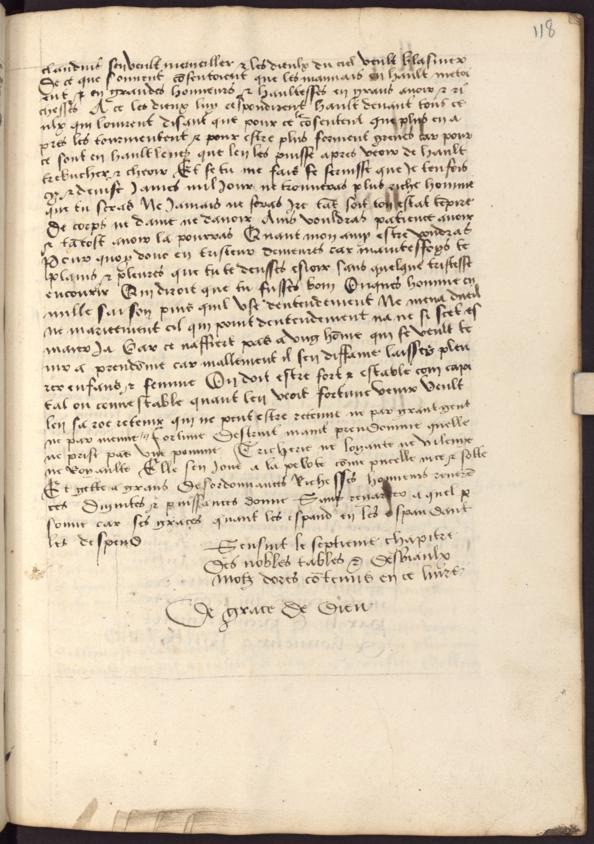 118
claudius sen veult merveiller & les dieux du ciel veult blasmer
De ce que sonnent cõsentoient que les mauvais en hault metoi
ent & en grandes honneurs & haultesses en grans avoir & ri
chesses A ce les dieux luy respondirent hault devant tous ce
ulx qui lourent disant que pour ce cõsentent que plus en a
pres les tourmentent & pour estre plus forment greves car pour
ce sont en hault leves que len les puisse apres veoir de hault
trebucher & cheoir Et se tu me fais se service que je tenjois
& devise James nul jour ne trouveras plus riche homme
que tu seras Ne jamais ne seras ire tãt soit ton estat empire
De corps ne damt ne davoir Ains vouldras patience avoir
& tãtost avoir la pourras Quant mon amy estre vouldras
Pour quoy donc en tristeur demeures car maintesfoys te
plains & pleures que tu te deusses esjoir sans quelque tristesse
encourir Qui diroit que tu fusses bon Onques homme en
nulle saison puis quil use dentendement Ne mena dueil
ne marrement cil qui point dentendement na ne si scet es
maier Ja Car ce naffiert pas a ung hõme qui se veult te
nir a preudome car mallement il sen diffame laisses pleu
rer enfans & femme On doit estre fort & estable com capi
tal ou connestable quant len veoit fortune venir Veult
len sa roe retenir qui ne peut estre retenue ne par grant gent
ne par menue Fortune destruit maint preudomme quelle
ne prise pas une pomme Tricherie ne loyaute ne vilenie
ne Royaulte Elle sen joue a la pelote come pucelle nice & folle
Et gette a grans desordonnances Richesses honneurs reverẽ
ces Dignites & puissances donne Sans regarder a quel p
sonne car ses graces quant les espand en les espandant
les despend
Sensuit le septieme chapitre
Des nobles tables & des biaulx
motz dores cõtenus en ce livre
De grace de Dieu